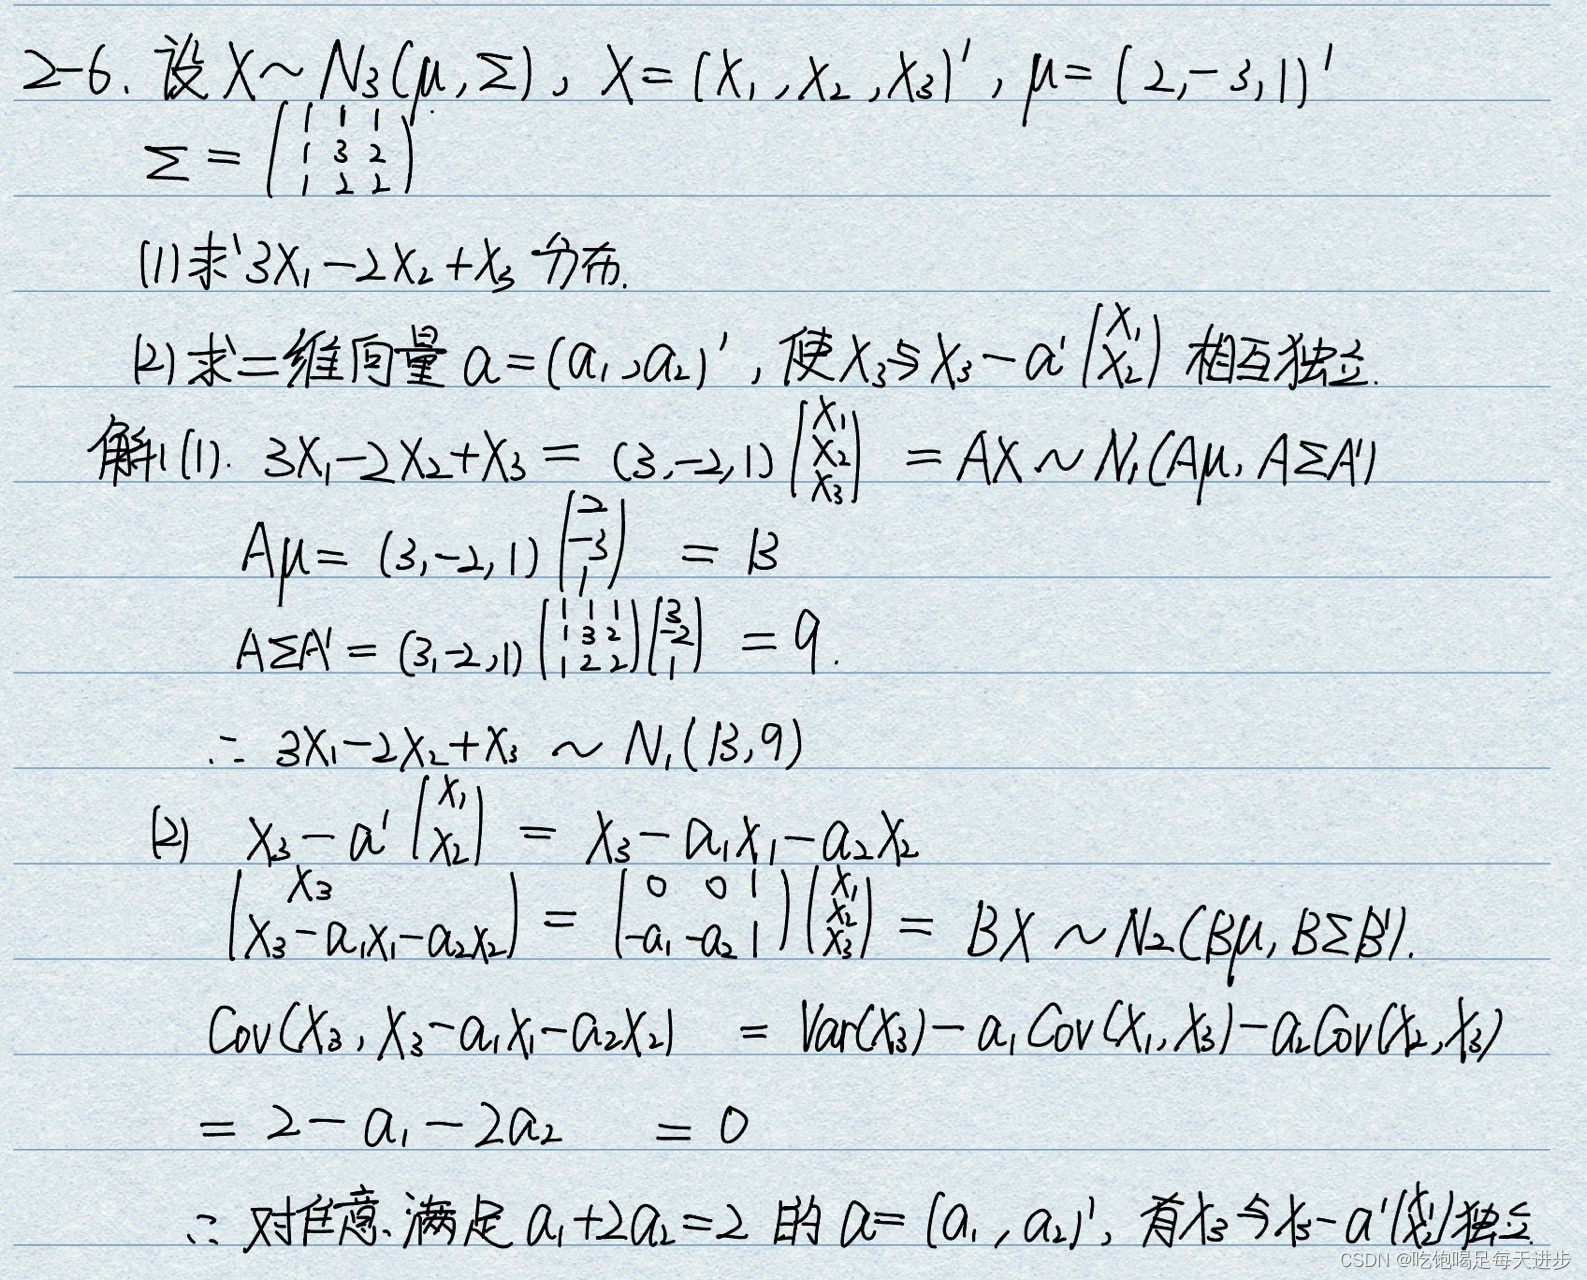 2-6. 设 X ~ N₃(μ, Σ), X = (X₁, X₂, X₃)', μ = (2, -3, 1)'
Σ = (1 1 1
1 3 2
1 2 2)
(1) 求 3X₁ - 2X₂ + X₃ 分布.
(2) 求二维向量 a = (a₁, a₂)', 使 X₃ 与 X₃ - a' (X₁ X₂) 相互独立.
解: (1). 3X₁ - 2X₂ + X₃ = (3, -2, 1) (X₁ X₂ X₃) = AX ~ N₁(Aμ, AΣA')
Aμ = (3, -2, 1) (2 -3 1) = 13
AΣA' = (3, -2, 1) (1 1 1 1 3 2 1 2 2) (3 -2 1) = 9.
∴ 3X₁ - 2X₂ + X₃ ~ N₁(13, 9)
(2) X₃ - a' (X₁ X₂) = X₃ - a₁X₁ - a₂X₂
(X₃ X₃ - a₁X₁ - a₂X₂) = (0 0 1 -a₁ -a₂ 1) (X₁ X₂ X₃) = BX ~ N₂(Bμ, BΣB').
Cov(X₃, X₃ - a₁X₁ - a₂X₂) = Var(X₃) - a₁Cov(X₁, X₃) - a₂Cov(X₂, X₃)
= 2 - a₁ - 2a₂ = 0
∴ 对任意满足 a₁ + 2a₂ = 2 的 a = (a₁, a₂)', 有 X₃ 与 X₃ - a' (X₁ X₂) 独立.
CSDN @吃饱喝足每天进步